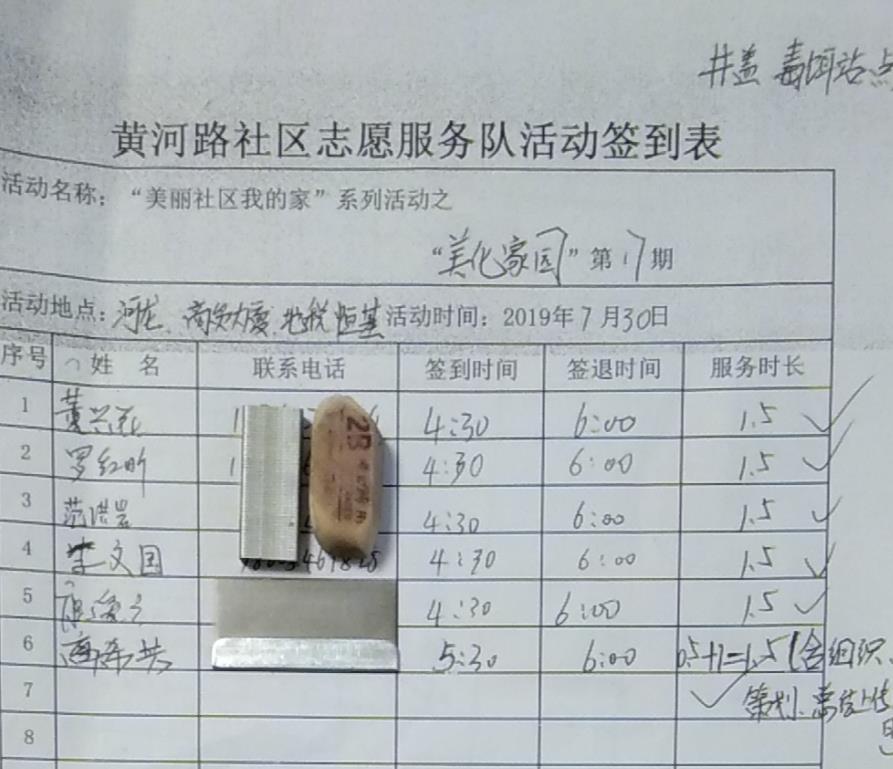 井盖 毒饵站点
黄河路社区志愿服务队活动签到表
活动名称：“美丽社区我的家”系列活动之
“美化家园”第17期
活动地点：河龙、商贸大厦 地税恒基 活动时间：2019年7月30日
序号 姓 名 联系电话 签到时间 签退时间 服务时长
1 黄兴 4:30 6:00 1.5 ✓
2 罗红昕 4:30 6:00 1.5 ✓
3 范洪 4:30 6:00 1.5 ✓
4 李文国 4:30 6:00 1.5 ✓
5 4:30 6:00 1.5 ✓
6 高希 5:30 6:00 0.5+1=1.5(含组织、
7 ✓ 策划、 上传
8
2B